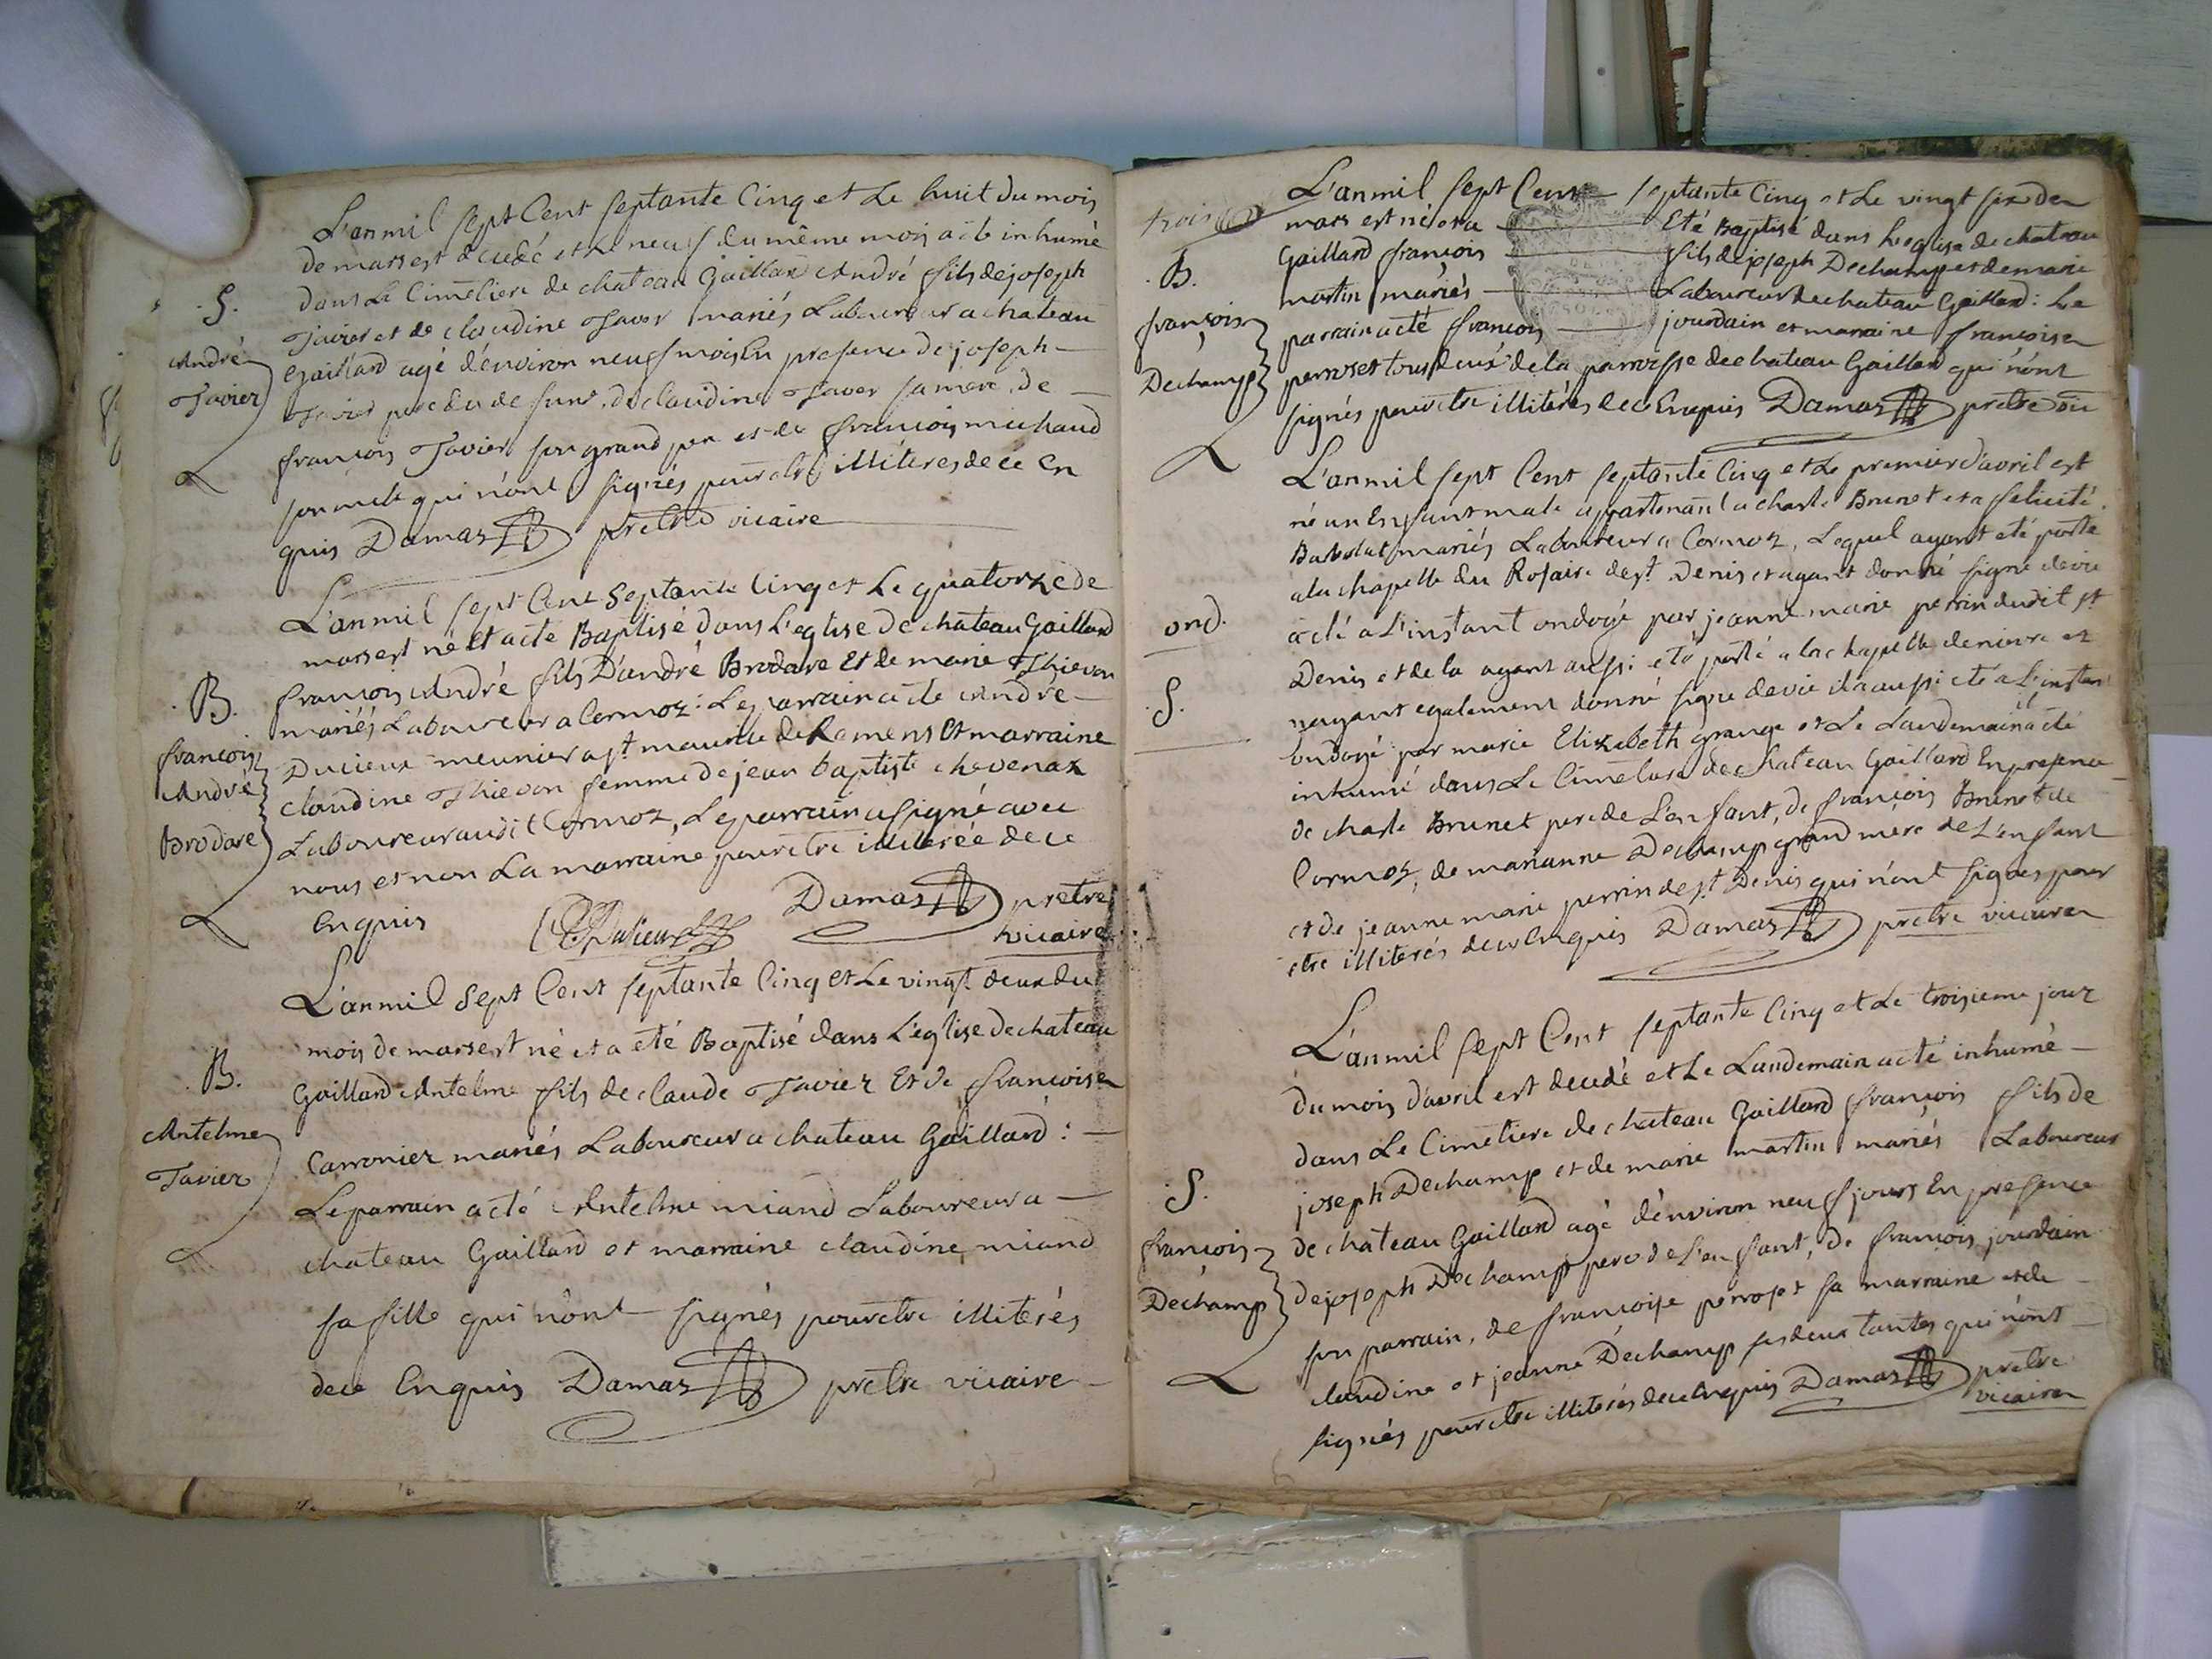 L'an mil sept Cent septante Cinq et Le huit du mois
de mars est décedé et Le neuf du même mois a eté inhumé
dans Le Cimetiere de chateau Gaillard André fils de joseph
S.
Tavier et de claudine Taver mariés Laboureur a chateau
André
Gaillard agé d'environ neuf mois En presence de joseph
Tavier
Tavier pere du defunt, de claudine Taver sa mere, de
françois Tavier son grand pere et de françois michaud
qui n'ont signés pour etre illiteres de ce En
quis Damaz prêtre vicaire
L'an mil sept Cent Septante Cinq et Le quatorze de
mars est né Et a eté Baptisé dans L'eglise de chateau Gaillard
B.
françois André fils D'andré Brodare Et de marie Thievon
mariés Laboureur a Cormoz: Le parrain a eté André
françois
Ducieux meunier a st maurice de Remens Et marraine
André
claudine Thievon femme de jean baptiste chevenax
Brodare
Laboureur audit Cormoz, Le parrain a signé avec
nous et non La marraine pour etre illiterée de ce
Enquis Damaz prêtre
vicaire
L'an mil Sept Cent septante Cinq et Le vingt deux du
mois de mars est né et a eté Baptisé dans L'eglise de chateau
B.
Gaillard Antelme fils de claude Tavier Et de françoise
Antelme
Carronier mariés Laboureur a chateau Gaillard:
Tavier
Le parrain a eté Antelme miand Laboureur a
chateau Gaillard et marraine claudine miand
sa fille qui n'ont signés pour etre illiterés
de ce Enquis Damaz prêtre vicaire
trois
L'an mil sept Cent septante Cinq et Le vingt six de
mars est né et a Eté Baptisé dans L'eglise de chateau
B.
Gaillard françois fils de joseph Dechamp et de marie
martin mariés Laboureur de chateau Gaillard: Le
françois
parrain a eté françois jourdain et marraine françoise
Dechamp
perroset tous deux de la parroisse de chateau Gaillard qui n'ont
signés pour etre illiterés de ce Enquis Damaz prêtre vic
L'an mil sept Cent septante Cinq et Le premier d'avril est
né un Enfant male appartenant a charle Brunet et a felicité
mariés Laboureur a Cormoz, Lequel ayant eté porté
a la chapelle du Rosaire de st Denis et ayant donné signe de vie
ond.
a eté a L'instant ondoyé par jeanne marie perrin dudit st
Denis et de la ayant aussi eté porté a la chapelle de et
S.
n'ayant egalement donné signe de vie il a aussi eté a L'instant
ondoyé par marie Elizabeth grange et Le Landemain il a eté
inhumé dans Le Cimetiere de chateau Gaillard En presence
de charle Brunet pere de L'enfant, de françois Brunet de
Cormoz, de marianne Dechamp grand mère de L'enfant
et de jeanne marie perrin de st Denis qui n'ont signés pour
etre illiterés de ce Enquis Damaz prêtre vicaire
L'an mil sept Cent septante Cinq et Le troisieme jour
du mois d'avril est decedé et Le Landemain a eté inhumé
dans Le Cimetiere de chateau Gaillard françois fils de
joseph Dechamp et de marie martin mariés Laboureur
S.
de chateau Gaillard agé d'environ neuf jours En presence
françois
de joseph Dechamp pere de L'enfant, de françois jourdain
Dechamp
son parrain, de françoise perroset sa marraine et de
claudine et jeanne Dechamp ses deux tantes qui n'ont
signés pour etre illiterés de ce Enquis Damaz prêtre
vicaire